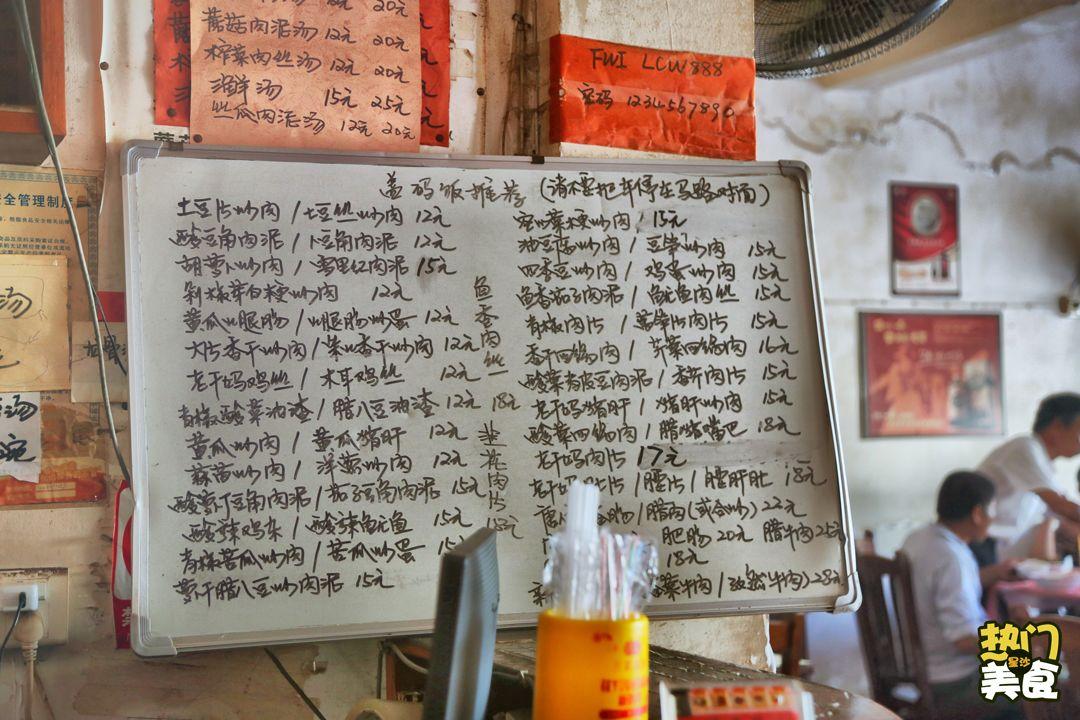 20元
蘑菇肉泥汤 12元 20元
榨菜肉丝汤 12元 20元
海鲜汤 15元 25元
丝瓜肉泥汤 12元 20元
FWI LCW888
密码 1234567890
安全管理制度
汤
盖码饭推荐 (请不要把车停在马路对面)
土豆片炒肉 / 土豆丝炒肉 12元
酸豆角肉泥 / 卜豆角肉泥 12元
胡萝卜炒肉 / 雪里红肉泥 15元
剁椒芽白梗炒肉 12元
黄瓜火腿肠 / 火腿肠炒蛋 12元
大片香干炒肉 / 香干炒肉 12元
老干妈鸡丝 / 木耳鸡丝 12元
青椒酸菜油渣 / 腊八豆油渣 12元 18元
黄瓜炒肉 / 黄瓜猪肝 12元
蒜苗炒肉 / 洋葱炒肉 12元
酸豆角肉泥 / 茄子豆角肉泥 15元
酸辣鸡杂 / 酸辣鱿鱼 15元
青椒苦瓜炒肉 / 苦瓜炒蛋 15
萝干腊八豆炒肉泥 15元
鱼香肉丝
韭花肉片
菜梗炒肉 / 15元
油豆腐炒肉 / 豆笋炒肉 15元
四季豆炒肉 / 鸡蛋炒肉 15元
鱼香茄子肉泥 / 鱿鱼肉丝 15元
青椒肉片 / 肉片 15元
香干回锅肉 / 芹菜回锅肉 16元
酸菜肉泥 / 香干肉片 15元
老干妈猪肝 / 猪肝炒肉 15元
酸菜回锅肉 / 腊猪嘴巴 18元
老干妈肉片 17元
老干妈 18元
腊肉(或合炒) 22元
肥肠 20元 腊牛肉
18元
牛肉) 28元
热门
星沙
美食